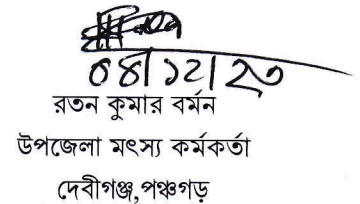 ০৪/১২/২৩
রতন কুমার বর্মন
উপজেলা মৎস্য কর্মকর্তা
দেবীগঞ্জ,পঞ্চগড়